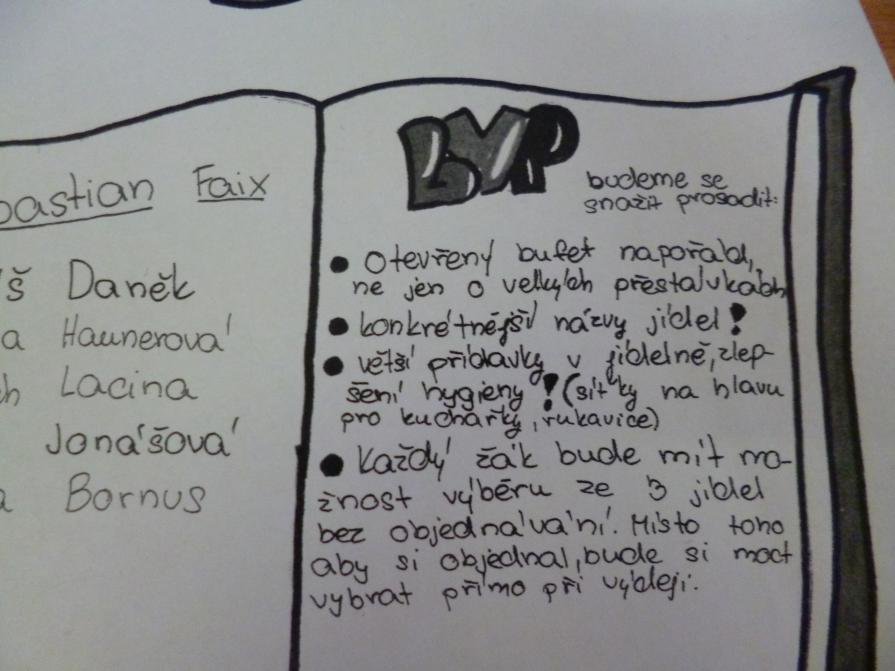 bastian Faix
š Daněk
a Haunerová
ch Lacina
Jonášová
a Bornus
LYP
budeme se
snažit prosadit:
• Otevřený bufet napořád,
ne jen o velkých přestávkách
• konkrétnější názvy jídel!
• větší přídavky v jídelně, zlep-
šení hygieny! (síťky na hlavu
pro kuchařky, rukavice)
• Každý žák bude mít mo-
žnost výběru ze 3 jídel
bez objednávání. Místo toho
aby si objednal, bude si moct
vybrat přímo při výdeji.